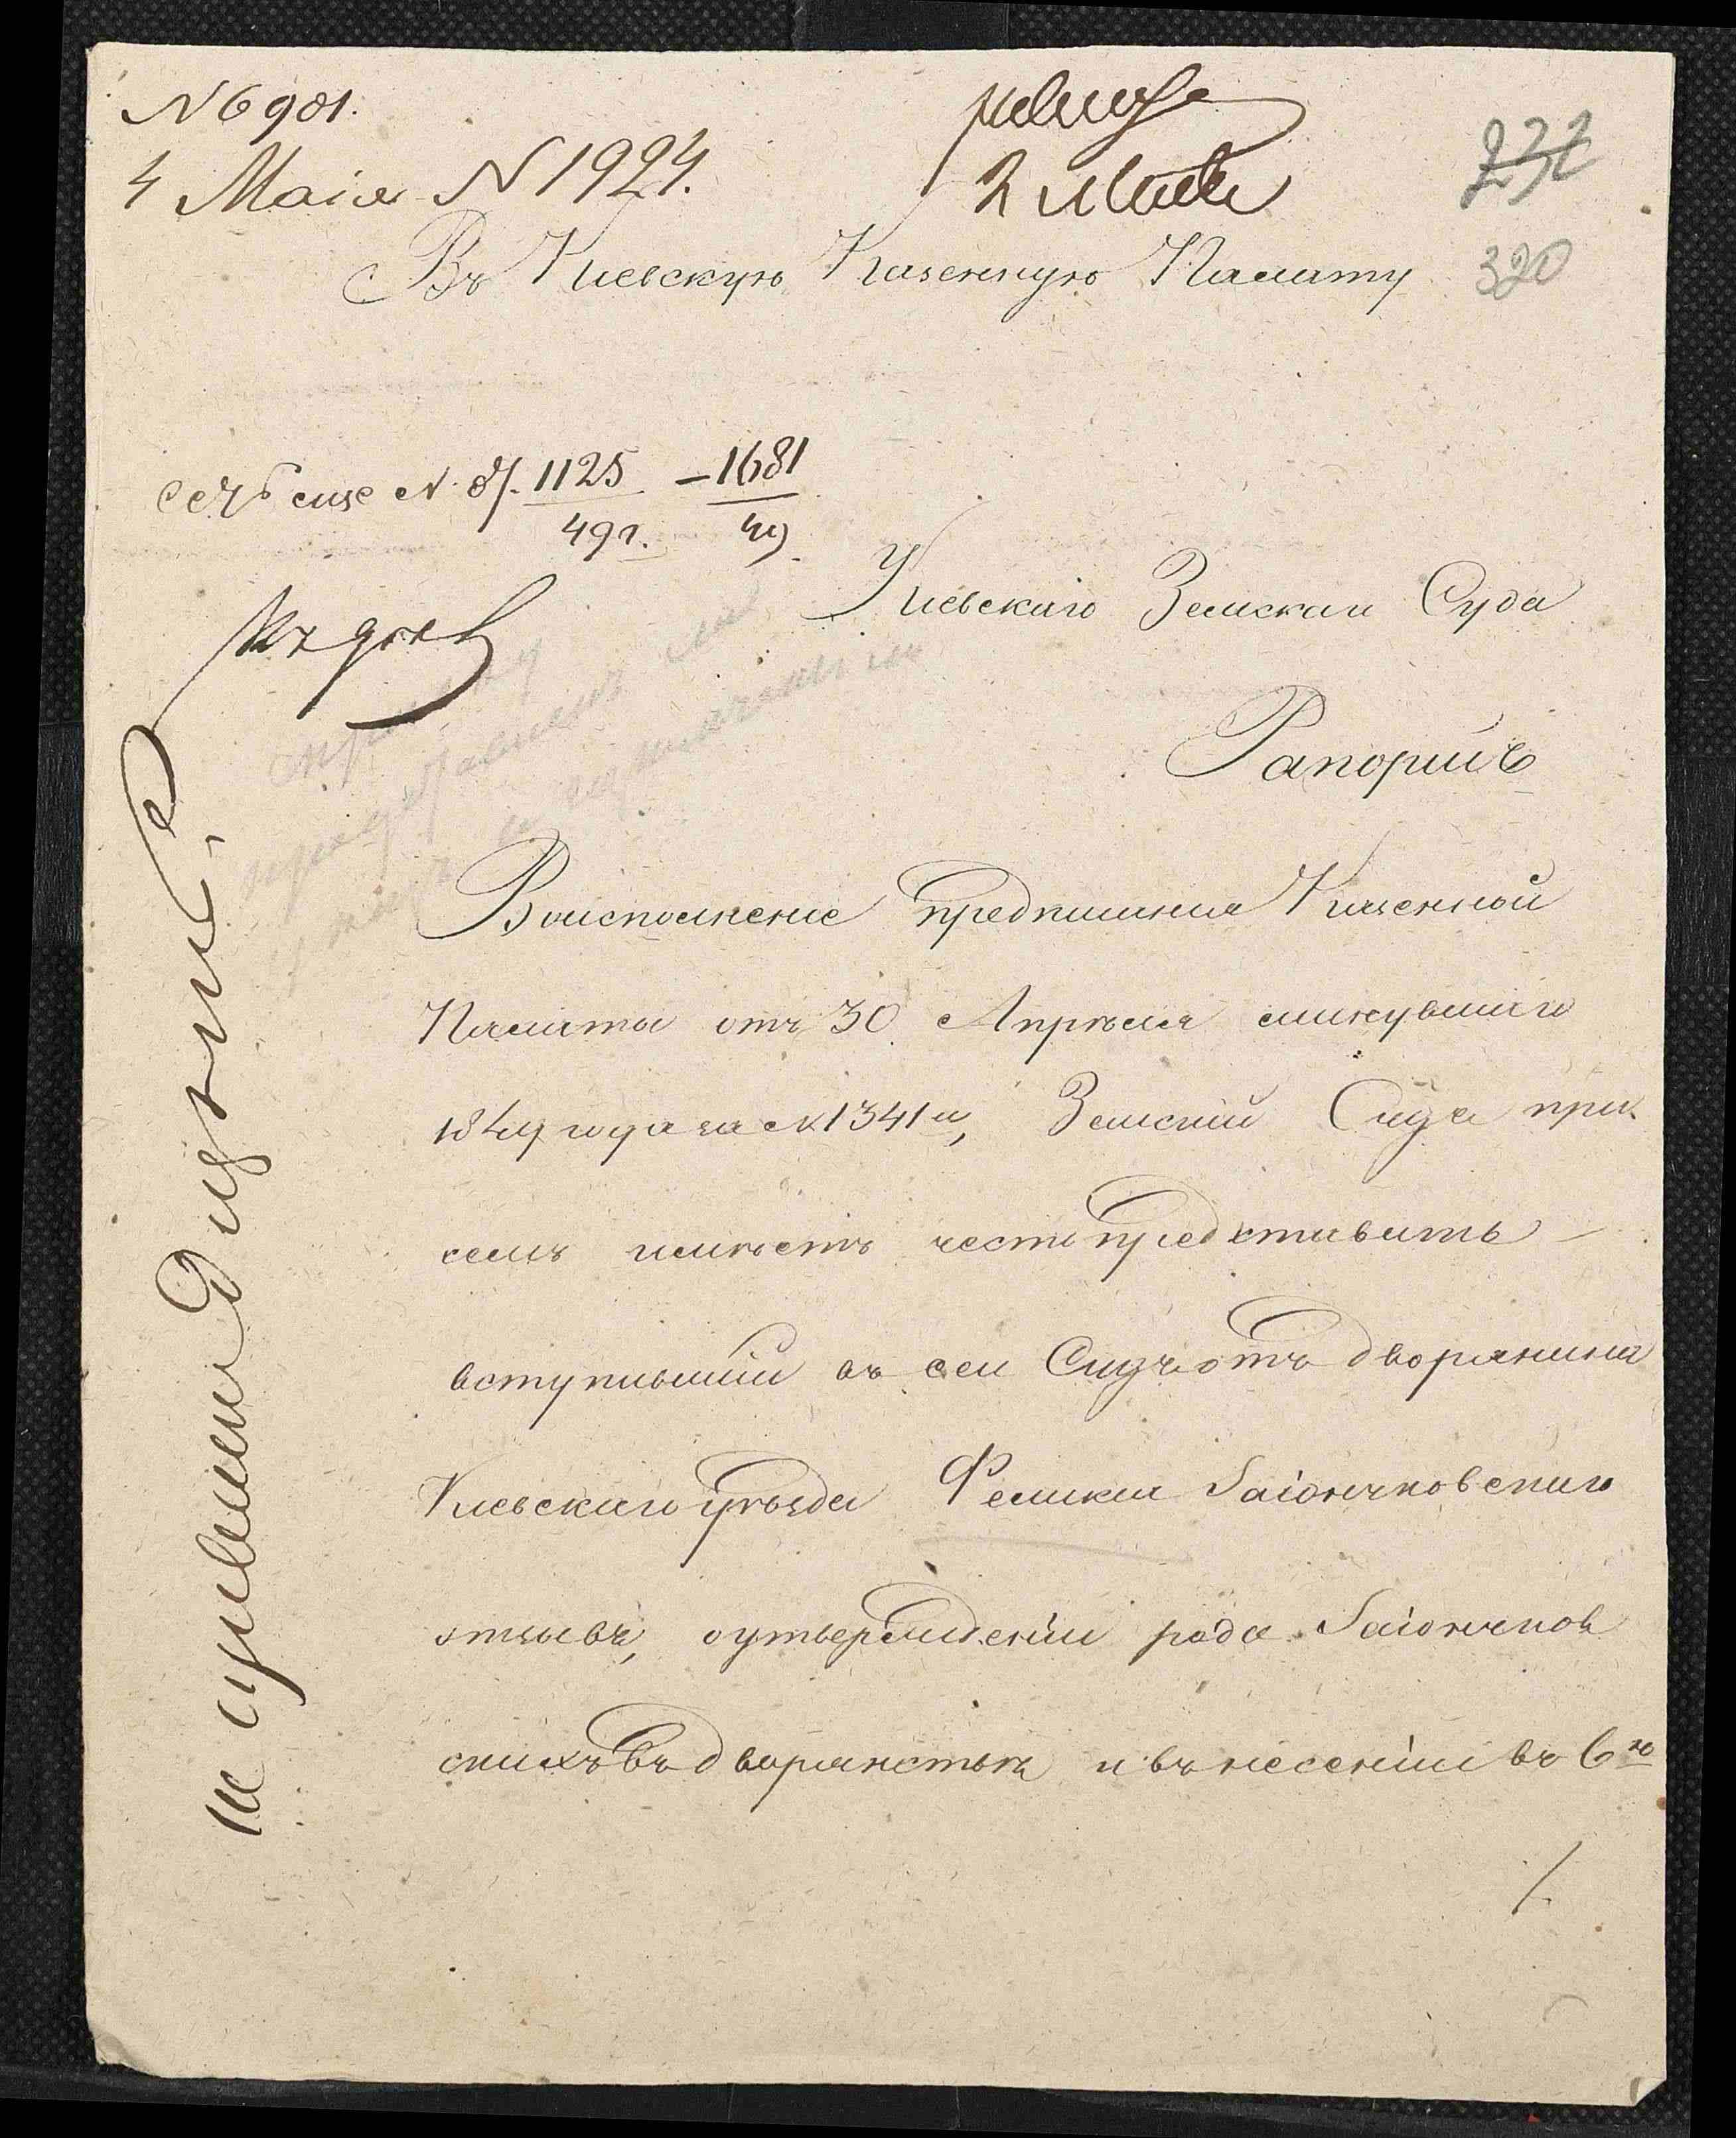 № 6981.
4 Маія № 1924.
2 Маія
232
320
Въ Кіевскую Казенную Палату
есть еще № 1125 – 1681
49 г. 49
Къ дѣлу
Кіевскаго Земскаго Суда
Рапортъ
Воисполнение предписания Казенной
Палаты отъ 30 Апрѣля минувшаго
1849 года за № 1341 м, Земский Судъ при
семъ имѣетъ честь представить
вступивший въ сей Судъ отъ дворянина
Кіевскаго уѣзда Феликса Заіончковскаго
отзывъ, оутверждении рода Заіончков
скихъ въ дворянствѣ и внесении въ 6ю